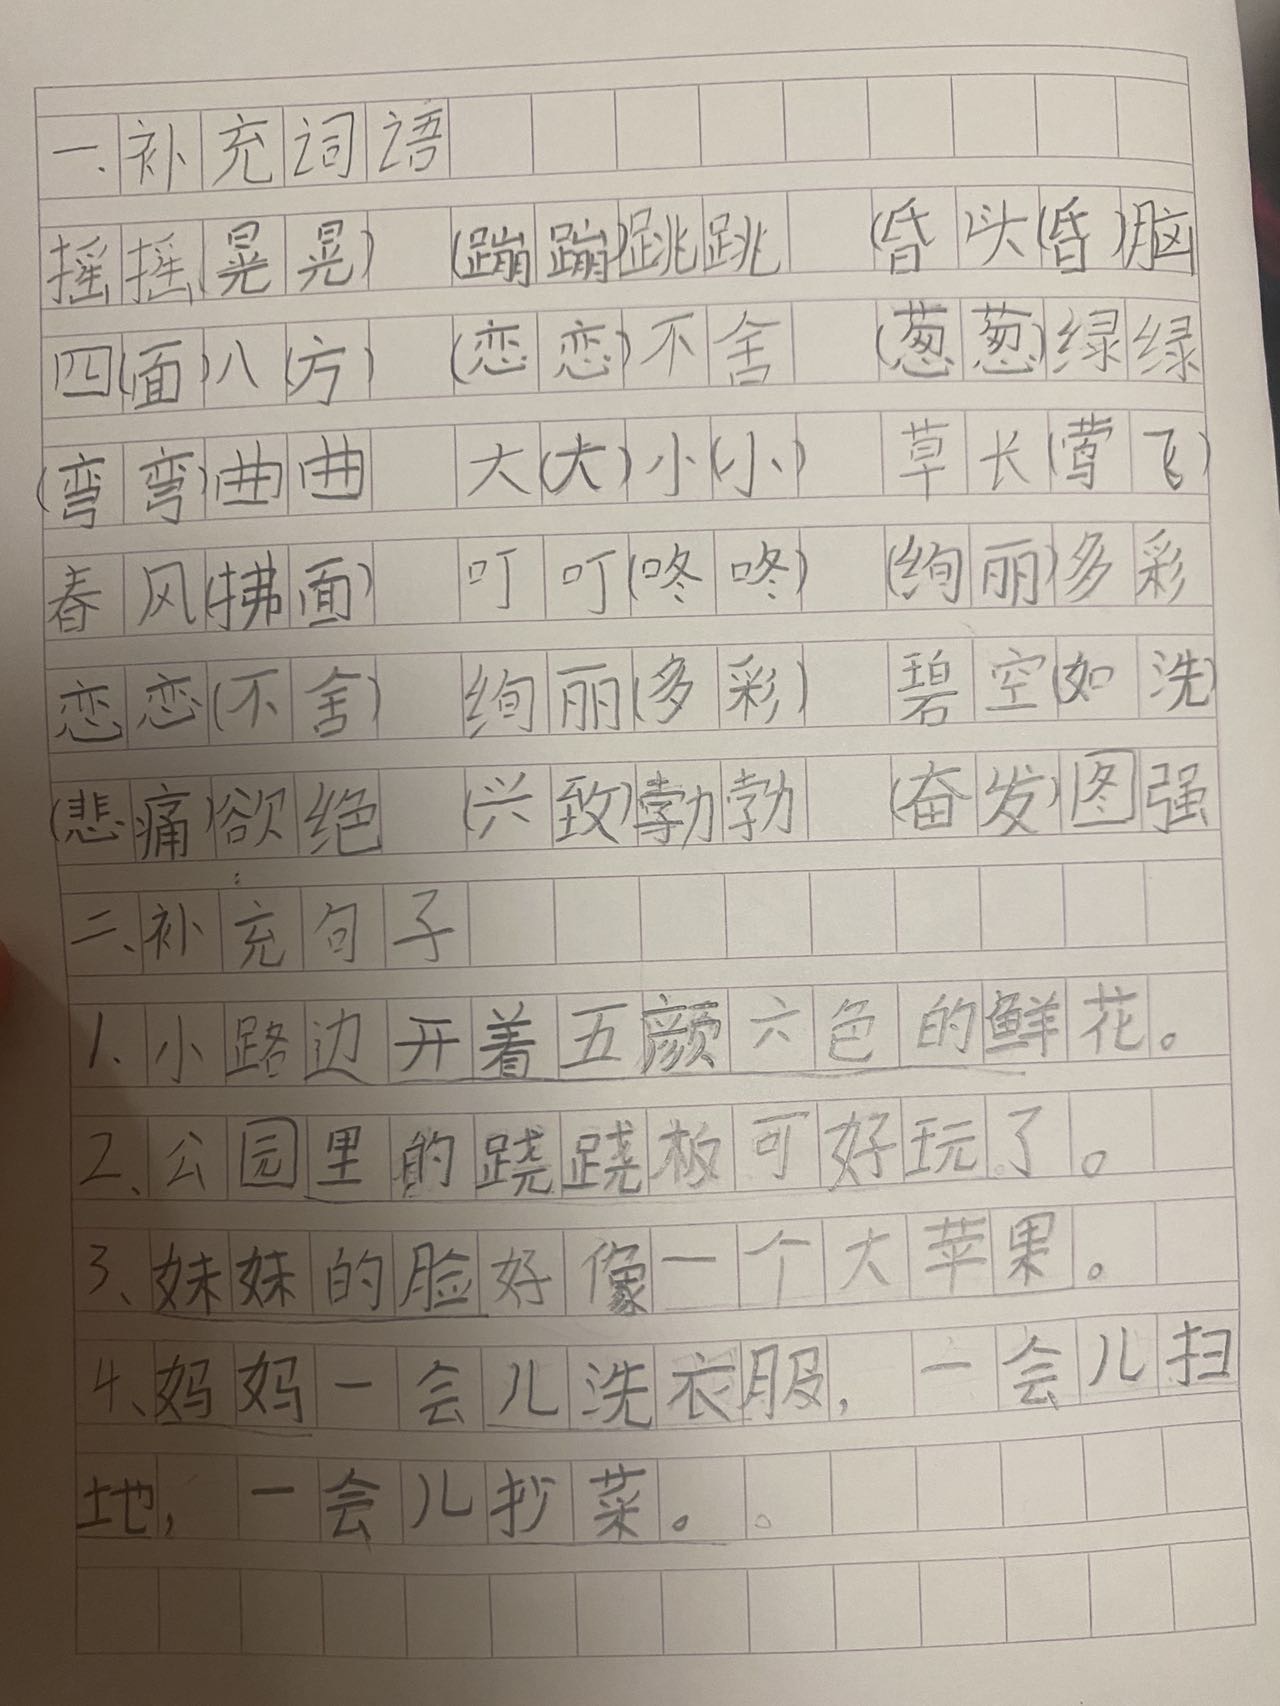 一、补充词语
摇摇(晃晃) (蹦蹦)跳跳 (昏)头(昏)脑
四(面)八(方) (恋恋)不舍 (葱葱)绿绿
(弯弯)曲曲 大(大)小(小) 草长(莺飞)
春风(拂面) 叮叮(咚咚) (绚丽)多彩
恋恋(不舍) 绚丽(多彩) 碧空(如洗)
(悲痛)欲绝 (兴致)勃勃 (奋发)图强
二、补充句子
1、小路边开着五颜六色的鲜花。
2、公园里的跷跷板可好玩了。
3、妹妹的脸好像一个大苹果。
4、妈妈一会儿洗衣服,一会儿扫
地,一会儿抄菜。。